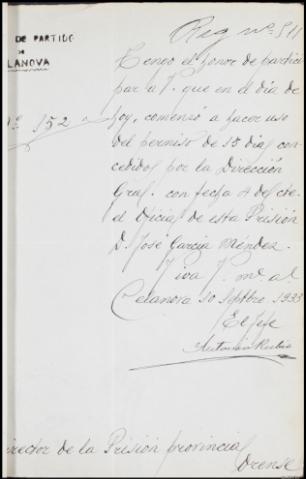 Reg nº 511
DE PARTIDO
DE
LANOVA
Nº 152
Tengo el honor de partici
par a V. que en el dia de
hoy, comensó a hacer uso
del permiso de 15 dias con
cedidos por la Dirección
Gral. con fecha 4 del cte.
el Oficial de esta Prisión
D. José García Méndez.
Viva V. m. a.
Celanova 10 Septbre. 1933
El Jefe
Antonio Rubio
irector de la Prisión provincial
Orense